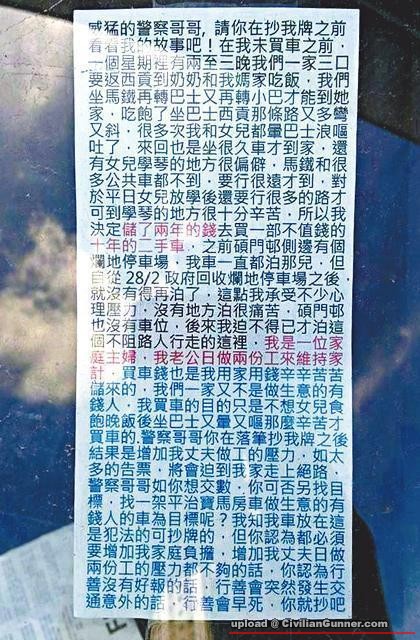 威猛的警察哥哥，請你在抄我牌之前
看看我的故事吧！在我未買車之前，
一個星期裡有兩至三晚我們一家三口
要返西貢到奶奶和我媽家吃飯，我們
坐馬鐵再轉巴士又再轉小巴才能到她
家，吃飽了坐巴士西貢那條路又多彎
又斜，很多次我和女兒都暈巴士浪嘔
吐了，來回也是坐很久車才到家，還
有女兒學琴的地方很偏僻，馬鐵和很
多公共車都不到，要行很遠才到，對
於平日女兒放學後還要行很多的路才
可到學琴的地方很十分辛苦，所以我
決定儲了兩年的錢去買一部不值錢的
十年的二手車，之前碩門邨側邊有個
爛地停車場，我車一直都泊那兒，但
自從28/2政府回收爛地停車場之後
就沒有得再泊了，這點我承受不少心
理壓力，沒有地方泊很痛苦，碩門邨
也沒有車位，後來我迫不得已才泊這
個不阻路人行走的這裡，我是一位家
庭主婦，我老公日做兩份工來維持家
計，買車錢也是我用家用錢辛辛苦苦
儲來的，我們一家又不是做生意的有
錢人，我買車的目的只是不想女兒食
飽晚飯後坐巴士又暈又嘔那麼辛苦才
買車的.警察哥哥你在落筆抄我牌之後
結果是增加我丈夫做工的壓力，如太
多的告票，將會迫到我家走上絕路，
警察哥哥如你想交數，你可否另找目
標，找一架平治寶馬房車做生意的有
錢人的車為目標呢？我知我車放在這
是犯法的可抄牌的，但你認為都必須
要增加我家庭負擔，增加我丈夫日做
兩份工的壓力都不夠的話，你認為行
善沒有好報的話，行善會突然發生交
通意外的話，行善會早死，你就抄吧
upload @ CivilianGunner.com